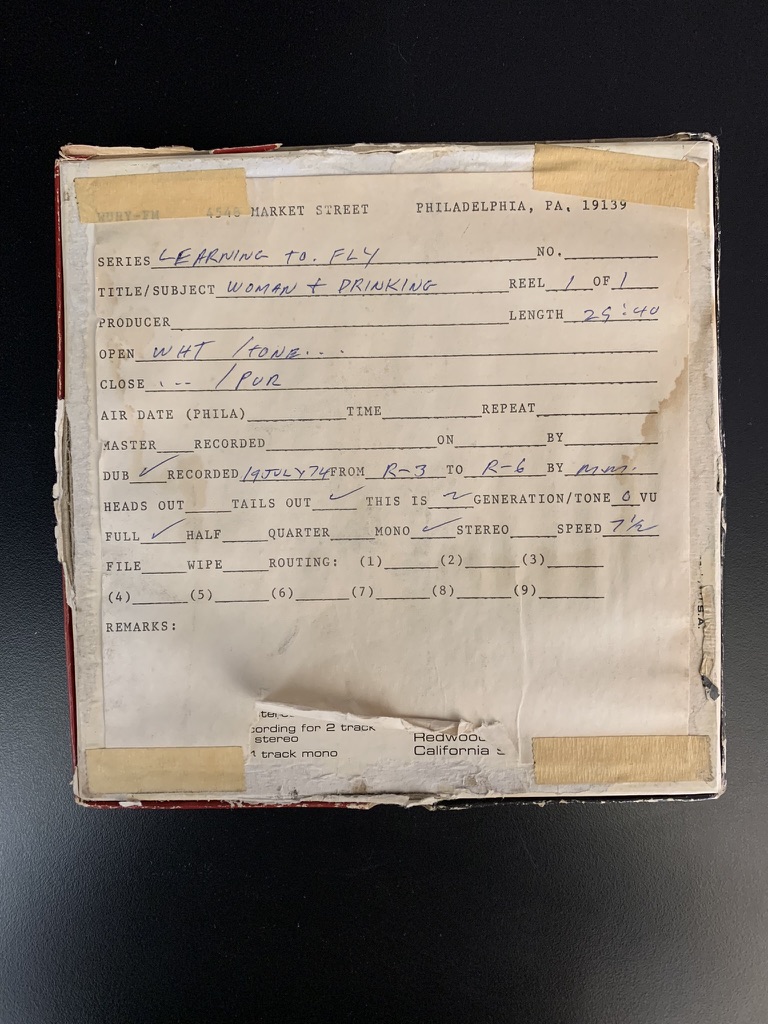 WUHY-FM 4548 MARKET STREET PHILADELPHIA, PA. 19139
SERIES LEARNING TO. FLY NO.
TITLE/SUBJECT WOMAN + DRINKING REEL 1 OF 1
PRODUCER LENGTH 29:40
OPEN WHT /TONE...
CLOSE ... /PUR
AIR DATE (PHILA) TIME REPEAT
MASTER RECORDED ON BY
DUB ✓ RECORDED 19JULY74 FROM R-3 TO R-6 BY M.M.
HEADS OUT TAILS OUT ✓ THIS IS GENERATION/TONE 0 VU
FULL ✓ HALF QUARTER MONO ✓ STEREO SPEED 7½
FILE WIPE ROUTING: (1) (2) (3)
(4) (5) (6) (7) (8) (9)
REMARKS:
cording for 2 track
stereo Redwood
track mono California
U.S.A.